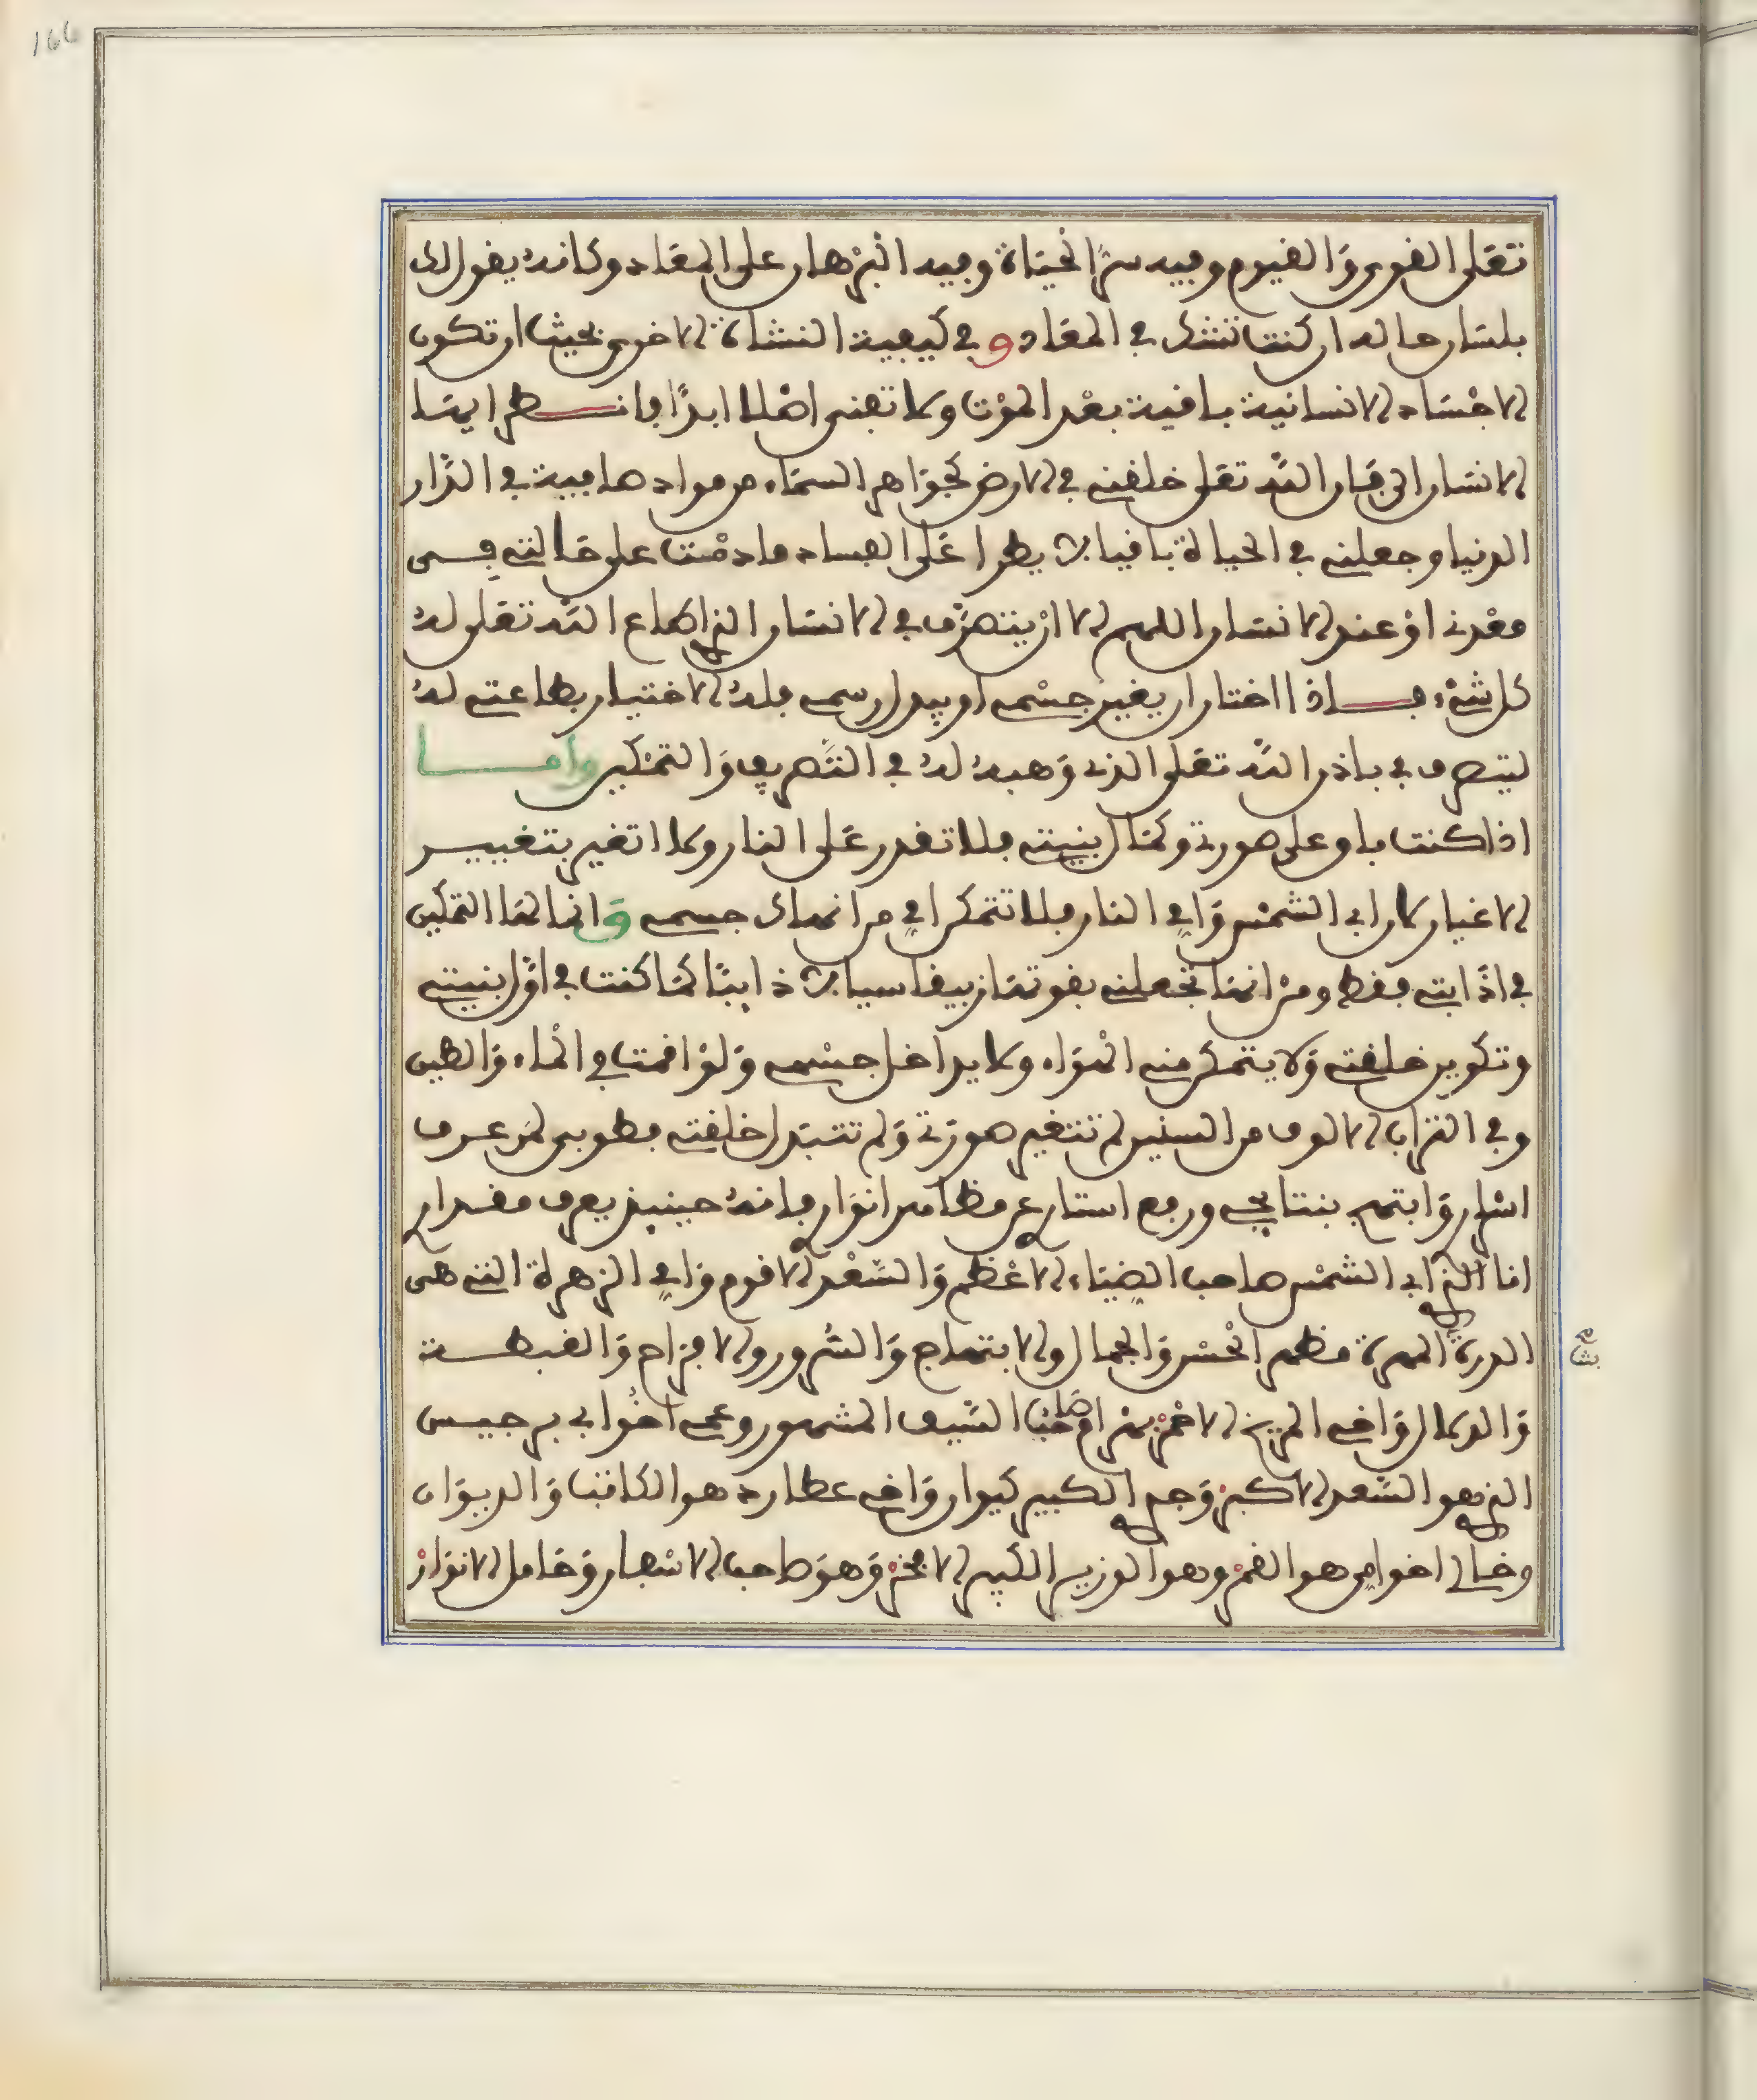 166
تعلى القوى والقيوم وفيه سر الحياة وفيه البرهان على المعاد وكانه يقول لك
بلسان حاله ان كنت تشك في المعاد و في كيفية النشاة الاخرى بحيث ان تكون
الاجساد الانسانية باقية بعد الموت ولا تفنى اصلا ابدا فانظر ايها
الانسان الى فان الله تعلى خلقنى في الارض كجواهر السماء من مواد صافية في الدار
الدنيا وجعلنى في الحياة باقيا لا يطرا على الفساد ما دمت على حالتى في
معدنى او عند الانسان اللهم الا ان يتصرف في الانسان الذى اطاع الله تعلى له
كل شىء فاذا اختار ان يغير جسمى او يبدل رسمى فله الاختيار بطاعتى له
ليتصرف في باذن الله تعلى الذى وهبه له في التصريف والتمكين واما
اذا كنت باق على صورتى وكمال بنيتى فلا تقدر على النار ولا اتغير بتغيير
الاغيار لان ابى الشمس وامى النار فلا تتمكن امى من انهاك جسمى وانما لها التمكين
في اذابتى فقط ومن انها تجعلنى بقوتها زيبقا سيالا ذايبا كما كنت في اول بنيتى
وتكوين خلقتى ولا يتمكن منى الهواء ولا يداخل جسمى ولو اقمت في الماء والطين
وفي التراب الالوف من السنين لم تتغير صورتى ولم تتبدل خلقتى فطوبى لمن عرف
اسرارى وابتهج بنتايجى ورفع استارى عن مظاهر انوارى فانه حينيذ يعرف مقدارى
انا الذى ابى الشمس صاحب الضياء الاعظم والسعد الاقوم وامى الزهرة التى هى
الدرة المهرة مظهر الحسن والجمال والابتهاج والسرور والافراح والغبطة
والدلال واخى المريخ الاحمر بهرام صاحب السيف المشهور وعمى اخو ابى برجيس
الذى هو السعد الاكبر وجدى الكبير كيوان واخى عطارد هو الكاتب والديوان
وخالى اخو امى هو القمر وهو الوزير الكبير الافخر وهو صاحب الاسعار وحامل الانوار